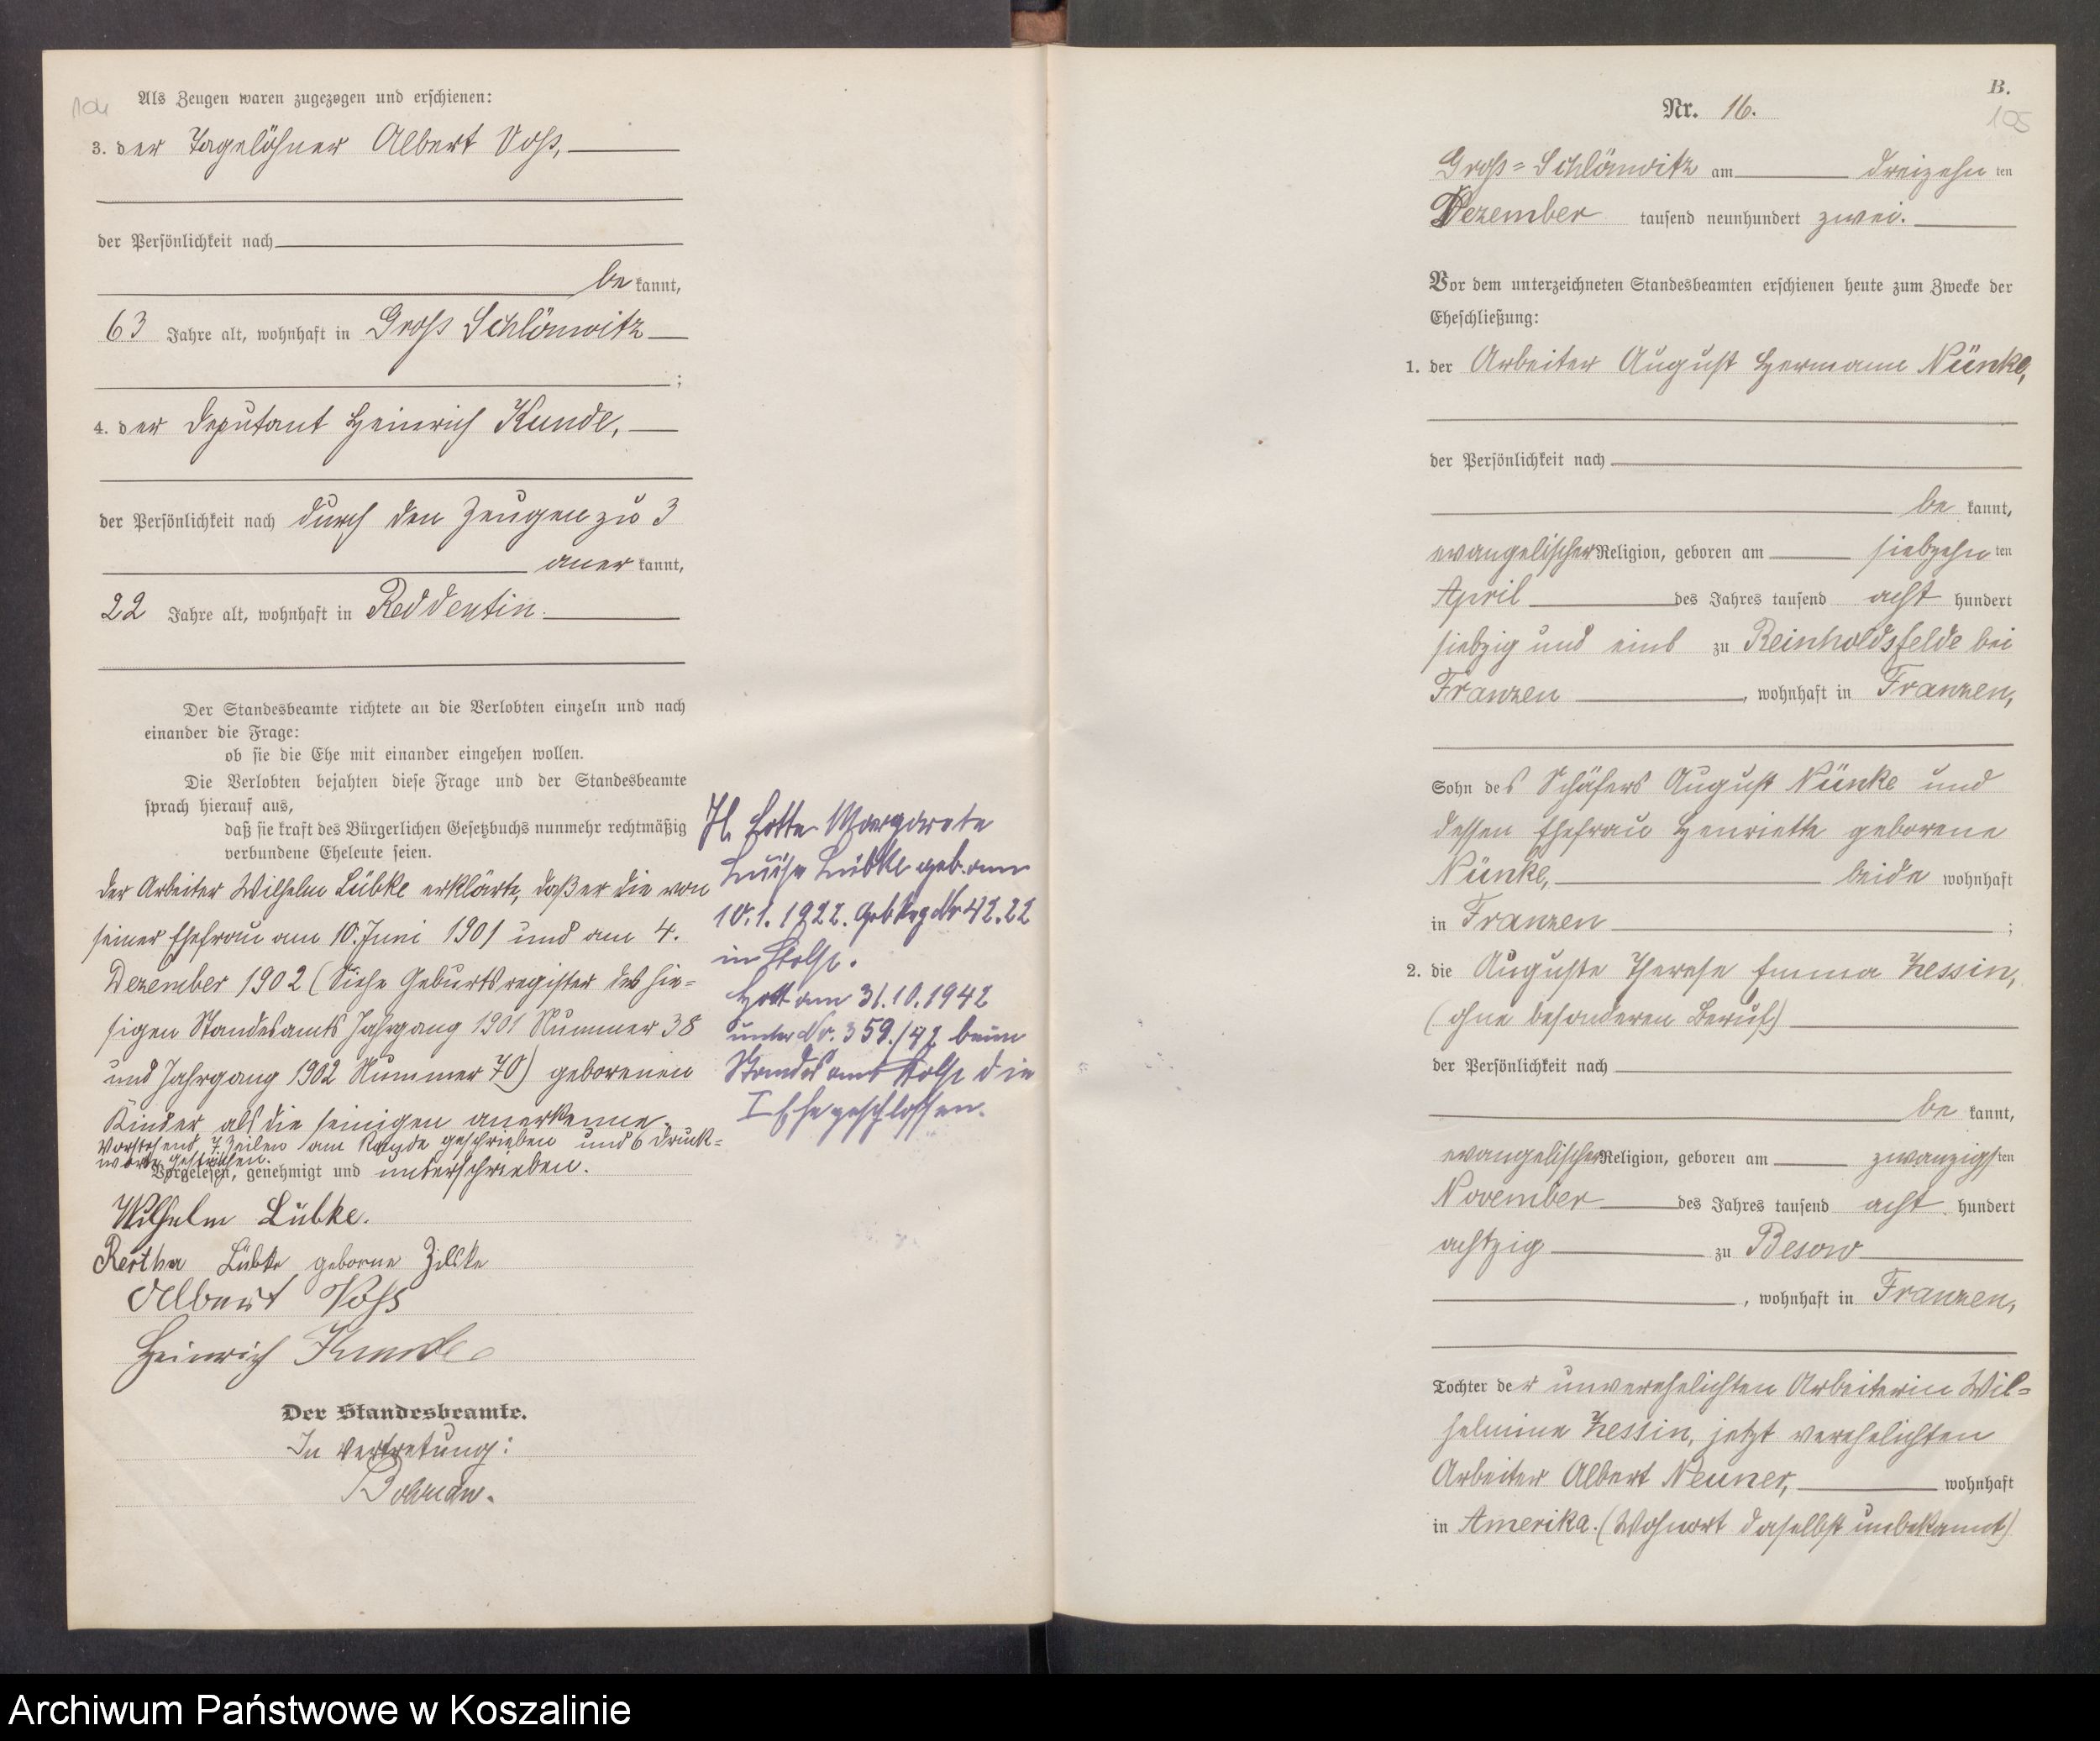 104
Als Zeugen waren zugezogen und erschienen:
3. der Tagelöhner Albert Voß,
der Persönlichkeit nach
be kannt,
63 Jahre alt, wohnhaft in Groß Schlönwitz
;
4. der Deputant Heinrich Kunde,
der Persönlichkeit nach durch den Zeugen zu 3
aner kannt,
22 Jahre alt, wohnhaft in Reddentin.
Der Standesbeamte richtete an die Verlobten einzeln und nach
einander die Frage:
ob sie die Ehe mit einander eingehen wollen.
Die Verlobten bejahten diese Frage und der Standesbeamte
sprach hierauf aus,
daß sie kraft des Bürgerlichen Gesetzbuchs nunmehr rechtmäßig
verbundene Eheleute seien.
der Arbeiter Wilhelm Lübke erklärte, daß er die von
seiner Ehefrau am 10. Juni 1901 und am 4.
Dezember 1902 (Siehe Geburtsregister des hie-
sigen Standesamts Jahrgang 1901 Nummer 38
und Jahrgang 1902 Nummer 70) geborenen
Kinder als die seinigen anerkenne.
Vorstehend 7 Zeilen am Rande geschrieben und 6 Druck-
worte gestrichen.
Vorgelesen, genehmigt und unterschrieben.
Wilhelm Lübke.
Bertha Lübke geborne Zillke
Albert Voß
Heinrich Kunde
Der Standesbeamte.
In Vertretung:
Lotte Margarete
Luise Lübke geb. am
10.1.1922. Geb Reg Nr 42.22
in Stolp.
hat am 31.10.1942
unter Nr. 359./42 beim
Standesamt Stolp die
I Ehe geschlossen.
B.
105
Nr. 16.
Groß-Schlönwitz am dreizehn ten
Dezember tausend neunhundert zwei.
Vor dem unterzeichneten Standesbeamten erschienen heute zum Zwecke der
Eheschließung:
1. der Arbeiter August Hermann Nünke,
der Persönlichkeit nach
be kannt,
evangelischer Religion, geboren am siebzehn ten
April des Jahres tausend acht hundert
siebzig und eins zu Reinholdsfelde bei
Franzen, wohnhaft in Franzen,
Sohn des Schäfers August Nünke und
dessen Ehefrau Henriette geborene
Nünke, beide wohnhaft
in Franzen ;
2. die Auguste Therese Emma Zessin,
(ohne besonderen Beruf)
der Persönlichkeit nach
be kannt,
evangelischer Religion, geboren am zwanzigsten
November des Jahres tausend acht hundert
achtzig zu Besow
, wohnhaft in Franzen,
Tochter der unverehelichten Arbeiterin Wil-
helmine Zessin, jetzt verehelichten
Arbeiter Albert Neuner, wohnhaft
in Amerika. (Wohnort daselbst unbekannt)
Archiwum Państwowe w Koszalinie